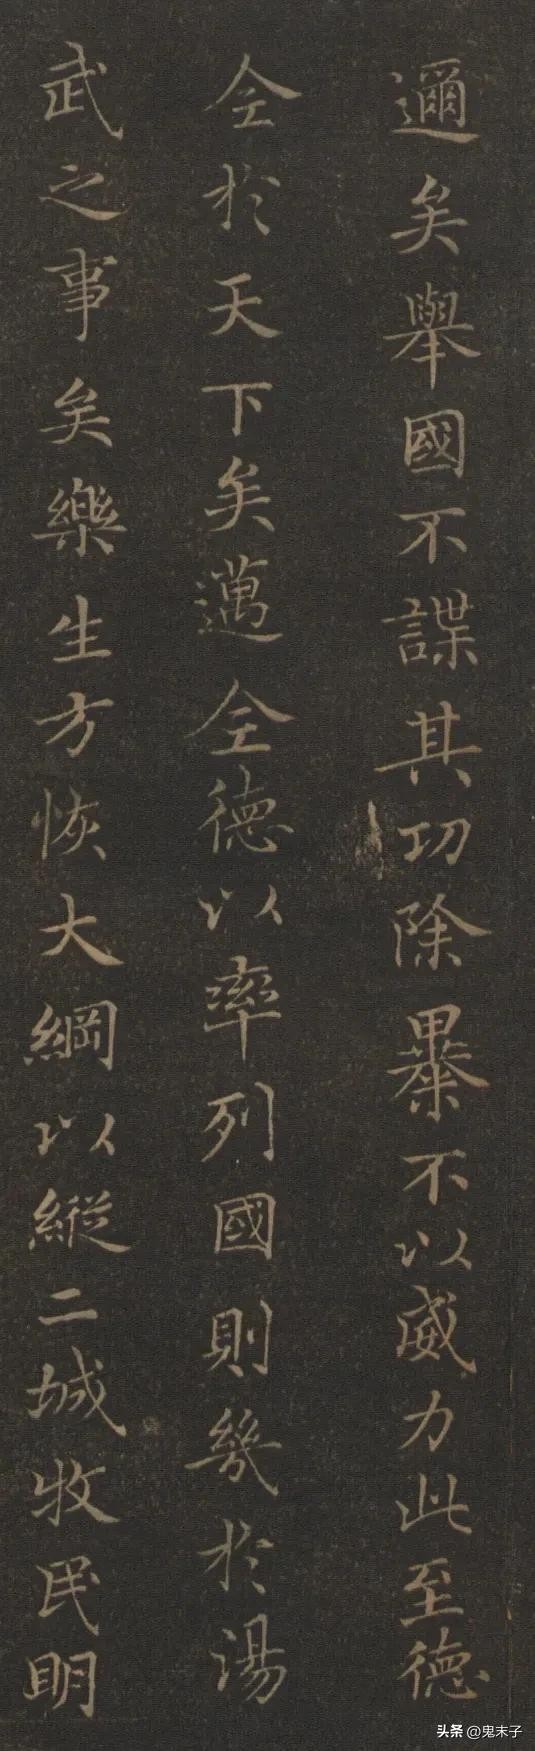 邇矣舉國不謀其功除暴不以威力此至德
全於天下矣邁全德以率列國則幾於湯
武之事矣樂生方恢大綱以縱二城牧民明
头条 @鬼末子